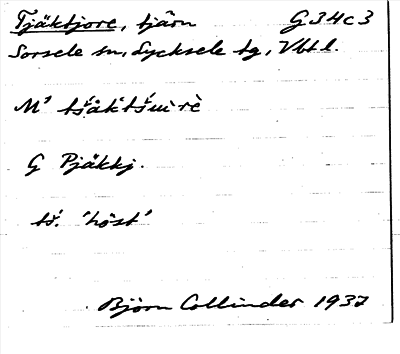 Tjäktjore, tjärn G34c3
Sorsele sn, Lycksele tg, Vbtl.
G Pjäkkj.
tš. 'höst'
Björn Collinder 1937